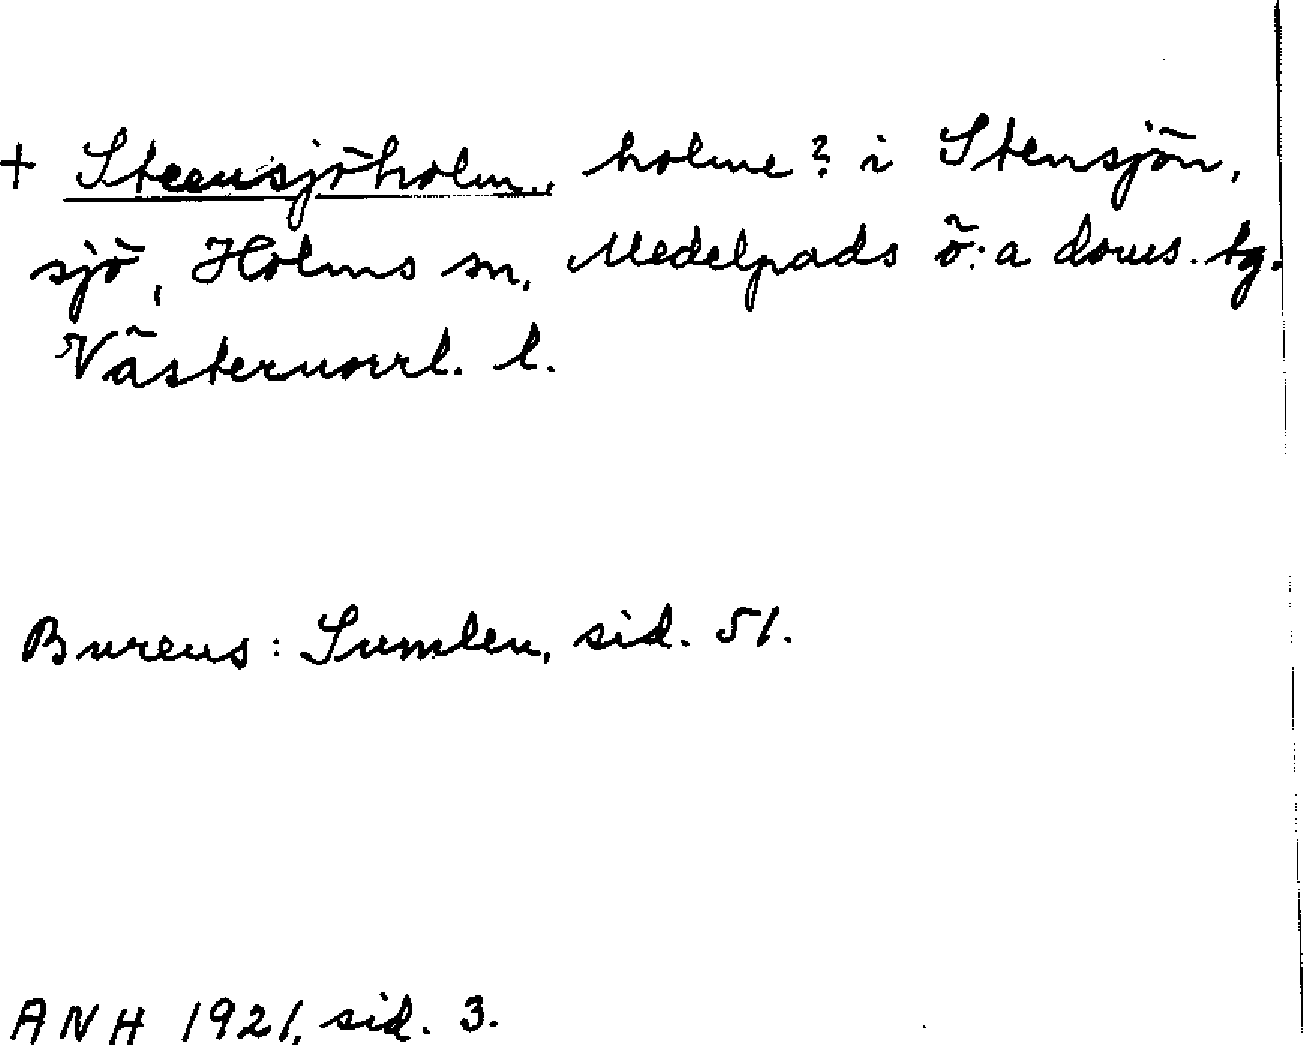 + Steensjöholm, holme? i Stensjön,
sjö, Holms sn, Medelpads ö:a doms. tg.
Västernorrl. l.
Bureus: Sumlen, sid. 51.
ANH 1921, sid. 3.